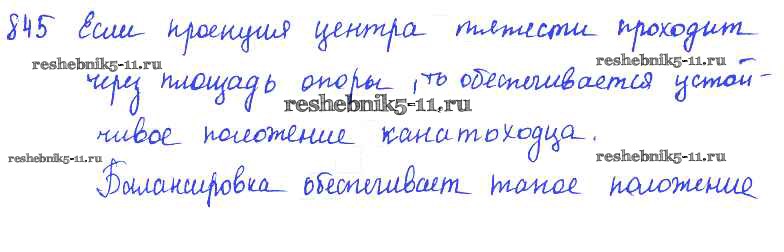 845 Если проекция центра тяжести проходит
reshebnik5-11.ru reshebnik5-11.ru
через площадь опоры, то обеспечивается устой-
reshebnik5-11.ru
чивое положение канатоходца.
reshebnik5-11.ru reshebnik5-11.ru
Балансировка обеспечивает такое положение